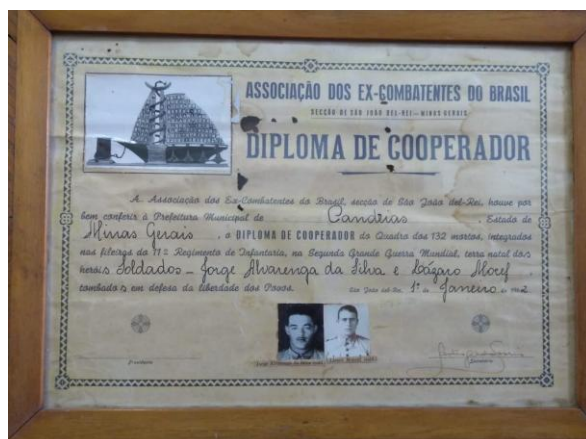 ASSOCIAÇÃO DOS EX-COMBATENTES DO BRASIL
SECÇÃO DE SÃO JOÃO DEL-REI — MINAS GERAIS
DIPLOMA DE COOPERADOR
A Associação dos Ex-Combatentes do Brasil, secção de São João del-Rei, houve por
bem conferir à Prefeitura Municipal de Candeias, Estado de
Minas Gerais, o DIPLOMA DE COOPERADOR do Quadro dos 132 mortos, integrados
nas fileiras do 11º Regimento de Infantaria, na Segunda Grande Guerra Mundial, terra natal dos
heróis Soldados - Jorge Alvarenga da Silva e Lázaro
tombados em defesa da liberdade dos Povos. São João del-Rei, 1º de Janeiro de
Presidente
Secretário